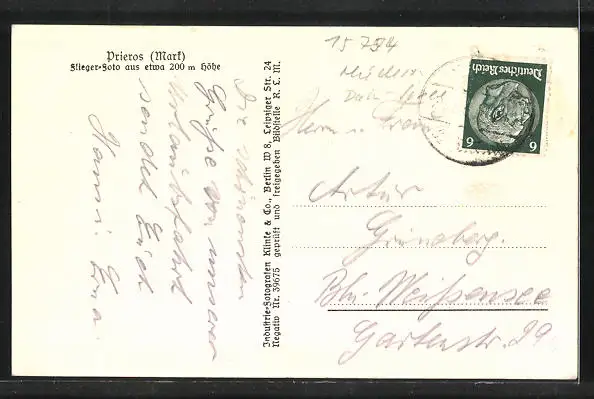 Prieros (Mark)
Flieger-Foto aus etwa 200 m Höhe
Die schönsten
Grüße von unserer
Urlaubsfahrt
sendet Euch
Hanni. Erna
Industrie-Fotografen Klinke & Co., Berlin W 8, Leipziger Str. 24
Negativ Nr. 39675 geprüft und freigegeben Bildstelle R. L. M.
15 734
Deutsches Reich
6 6
Herrn u. Frau
Artur
Grünberg.
Bln. Weißensee
Gartenstr. 29